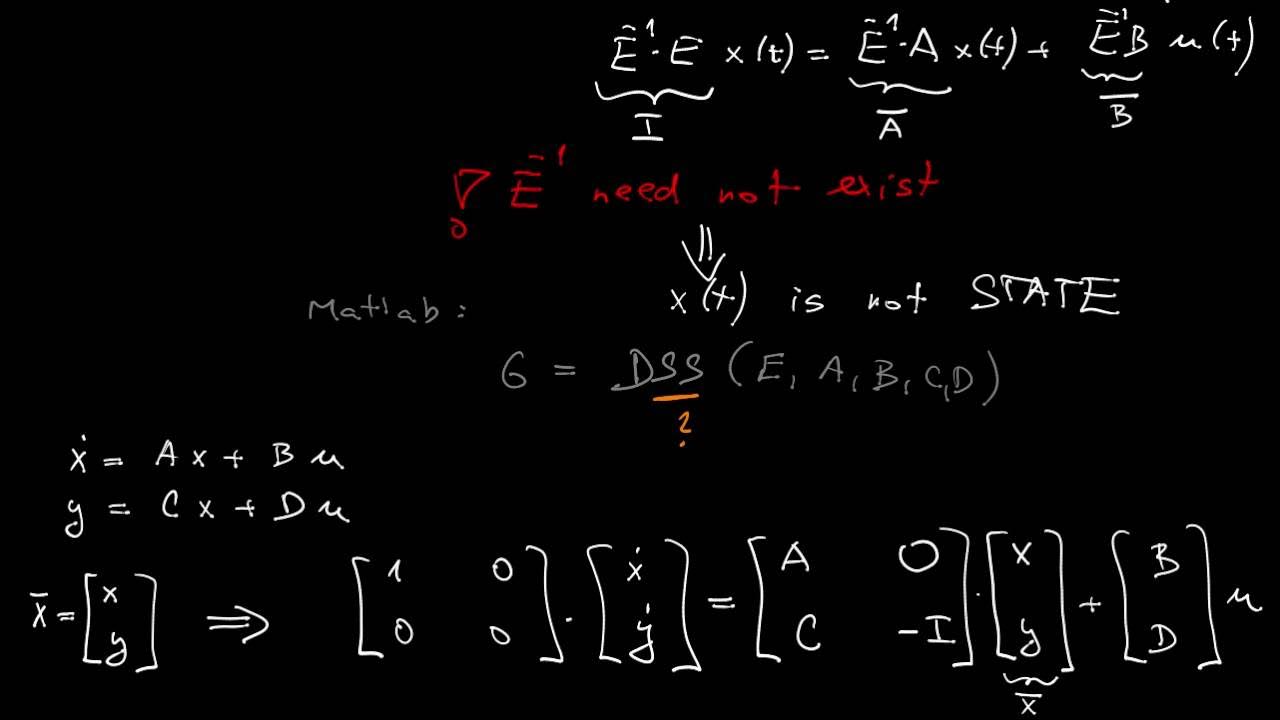 E⁻¹·E x(t) = E⁻¹·A x(t) + E⁻¹B u(t)
I Ā B̄
E⁻¹ need not exist
⇓
x(t) is not STATE
Matlab:
G = DSS (E, A, B, C, D)
?
ẋ = Ax + Bu
y = Cx + Du
x̄ = [x y] ⇒ [1 0 0 0] · [ẋ ẏ] = [A 0 C -I] · [x y] + [B D] u
x̄